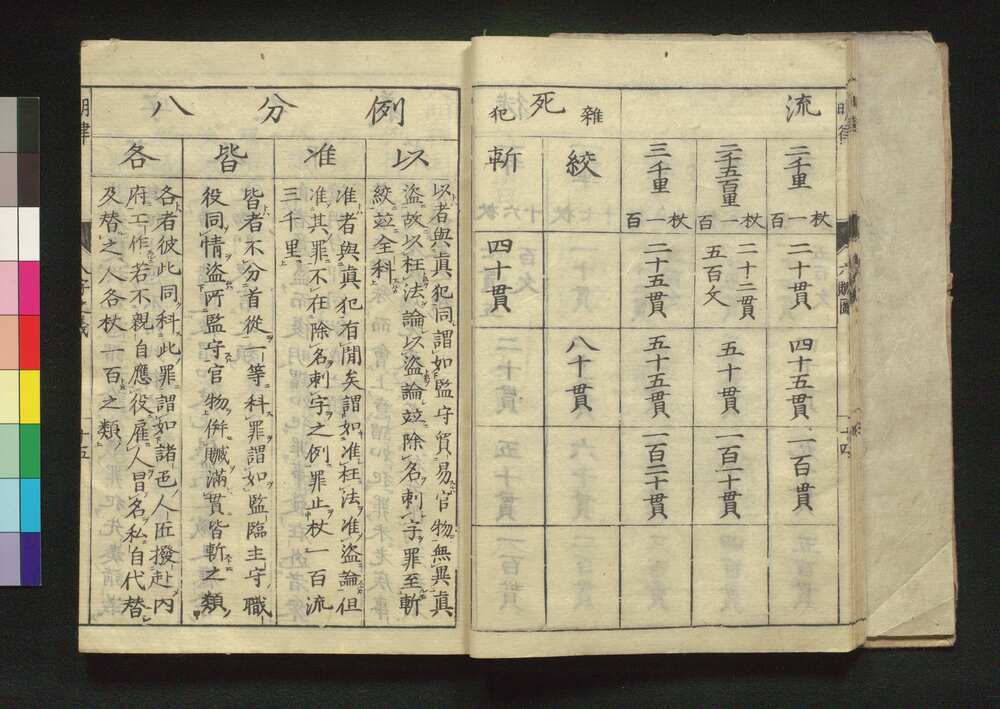 明律
六贓圖
十四
流
二千里
杖一百
二十貫
四十五貫
一百貫
二千五百里
杖一百
二十二貫
五百文
五十貫
一百一十貫
三千里
杖一百
二十五貫
五十五貫
一百二十貫
雜犯
死
絞
八十貫
斬
四十貫
例分八
以
以者與真犯同謂如監守貿易官物無異真
盜故以枉法論以盜論竝除名刺字罪至斬
絞竝全科
准
准者與真犯有間矣謂如准枉法准盜論但
准其罪不在除名刺字之例罪止杖一百流
三千里
皆
皆者不分首從一等科罪謂如監臨主守職
役同情盜所監守官物併贓滿貫皆斬之類
各
各者彼此同科此罪謂如諸色人匠撥赴內
府工作若不親自應役雇人冒名私自代替
及替之人各杖一百之類
明律
八字之義
十五